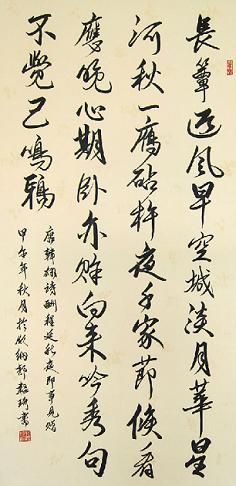 長簟迎風早空城淡月華星
河秋一鴈砧杵夜千家節候看
應晚心期卧亦賒向来吟秀句
不覺已鳴鴉
唐韓翃詩酬程延秋夜即事見贈
甲午年秋月於